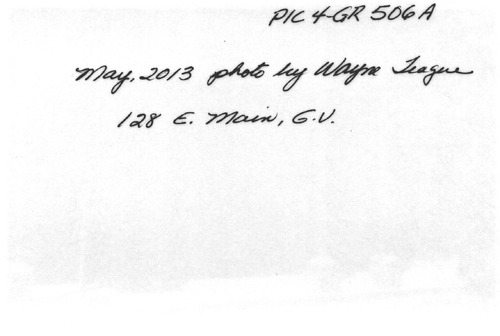 PIC 4-GR 506A
May, 2013 photo by Wayne Teague
128 E. Main, G.V.